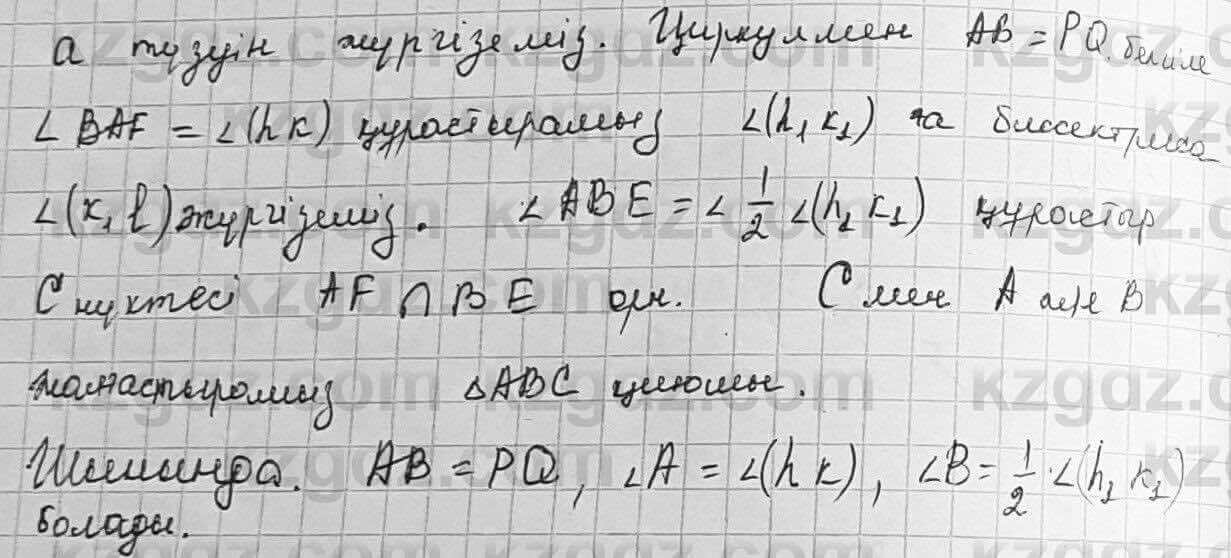 a түзуін жүргіземіз. Циркулмен AB = PQ. белгіле
∠ BAF = ∠(h k) құрастырамыз ∠(h₁ k₁) ға биссектриса
∠(k₁ l) жүргіземіз. ∠ABE = ∠ 1/2 ∠(h₁ k₁) құрастыр
C нүктесі AF ∩ BE орн. C мен A және B
жанастырамыз △ABC қиюмен.
Шынында. AB = PQ, ∠A = ∠(h k), ∠B = 1/2 · ∠(h₁ k₁)
болады.